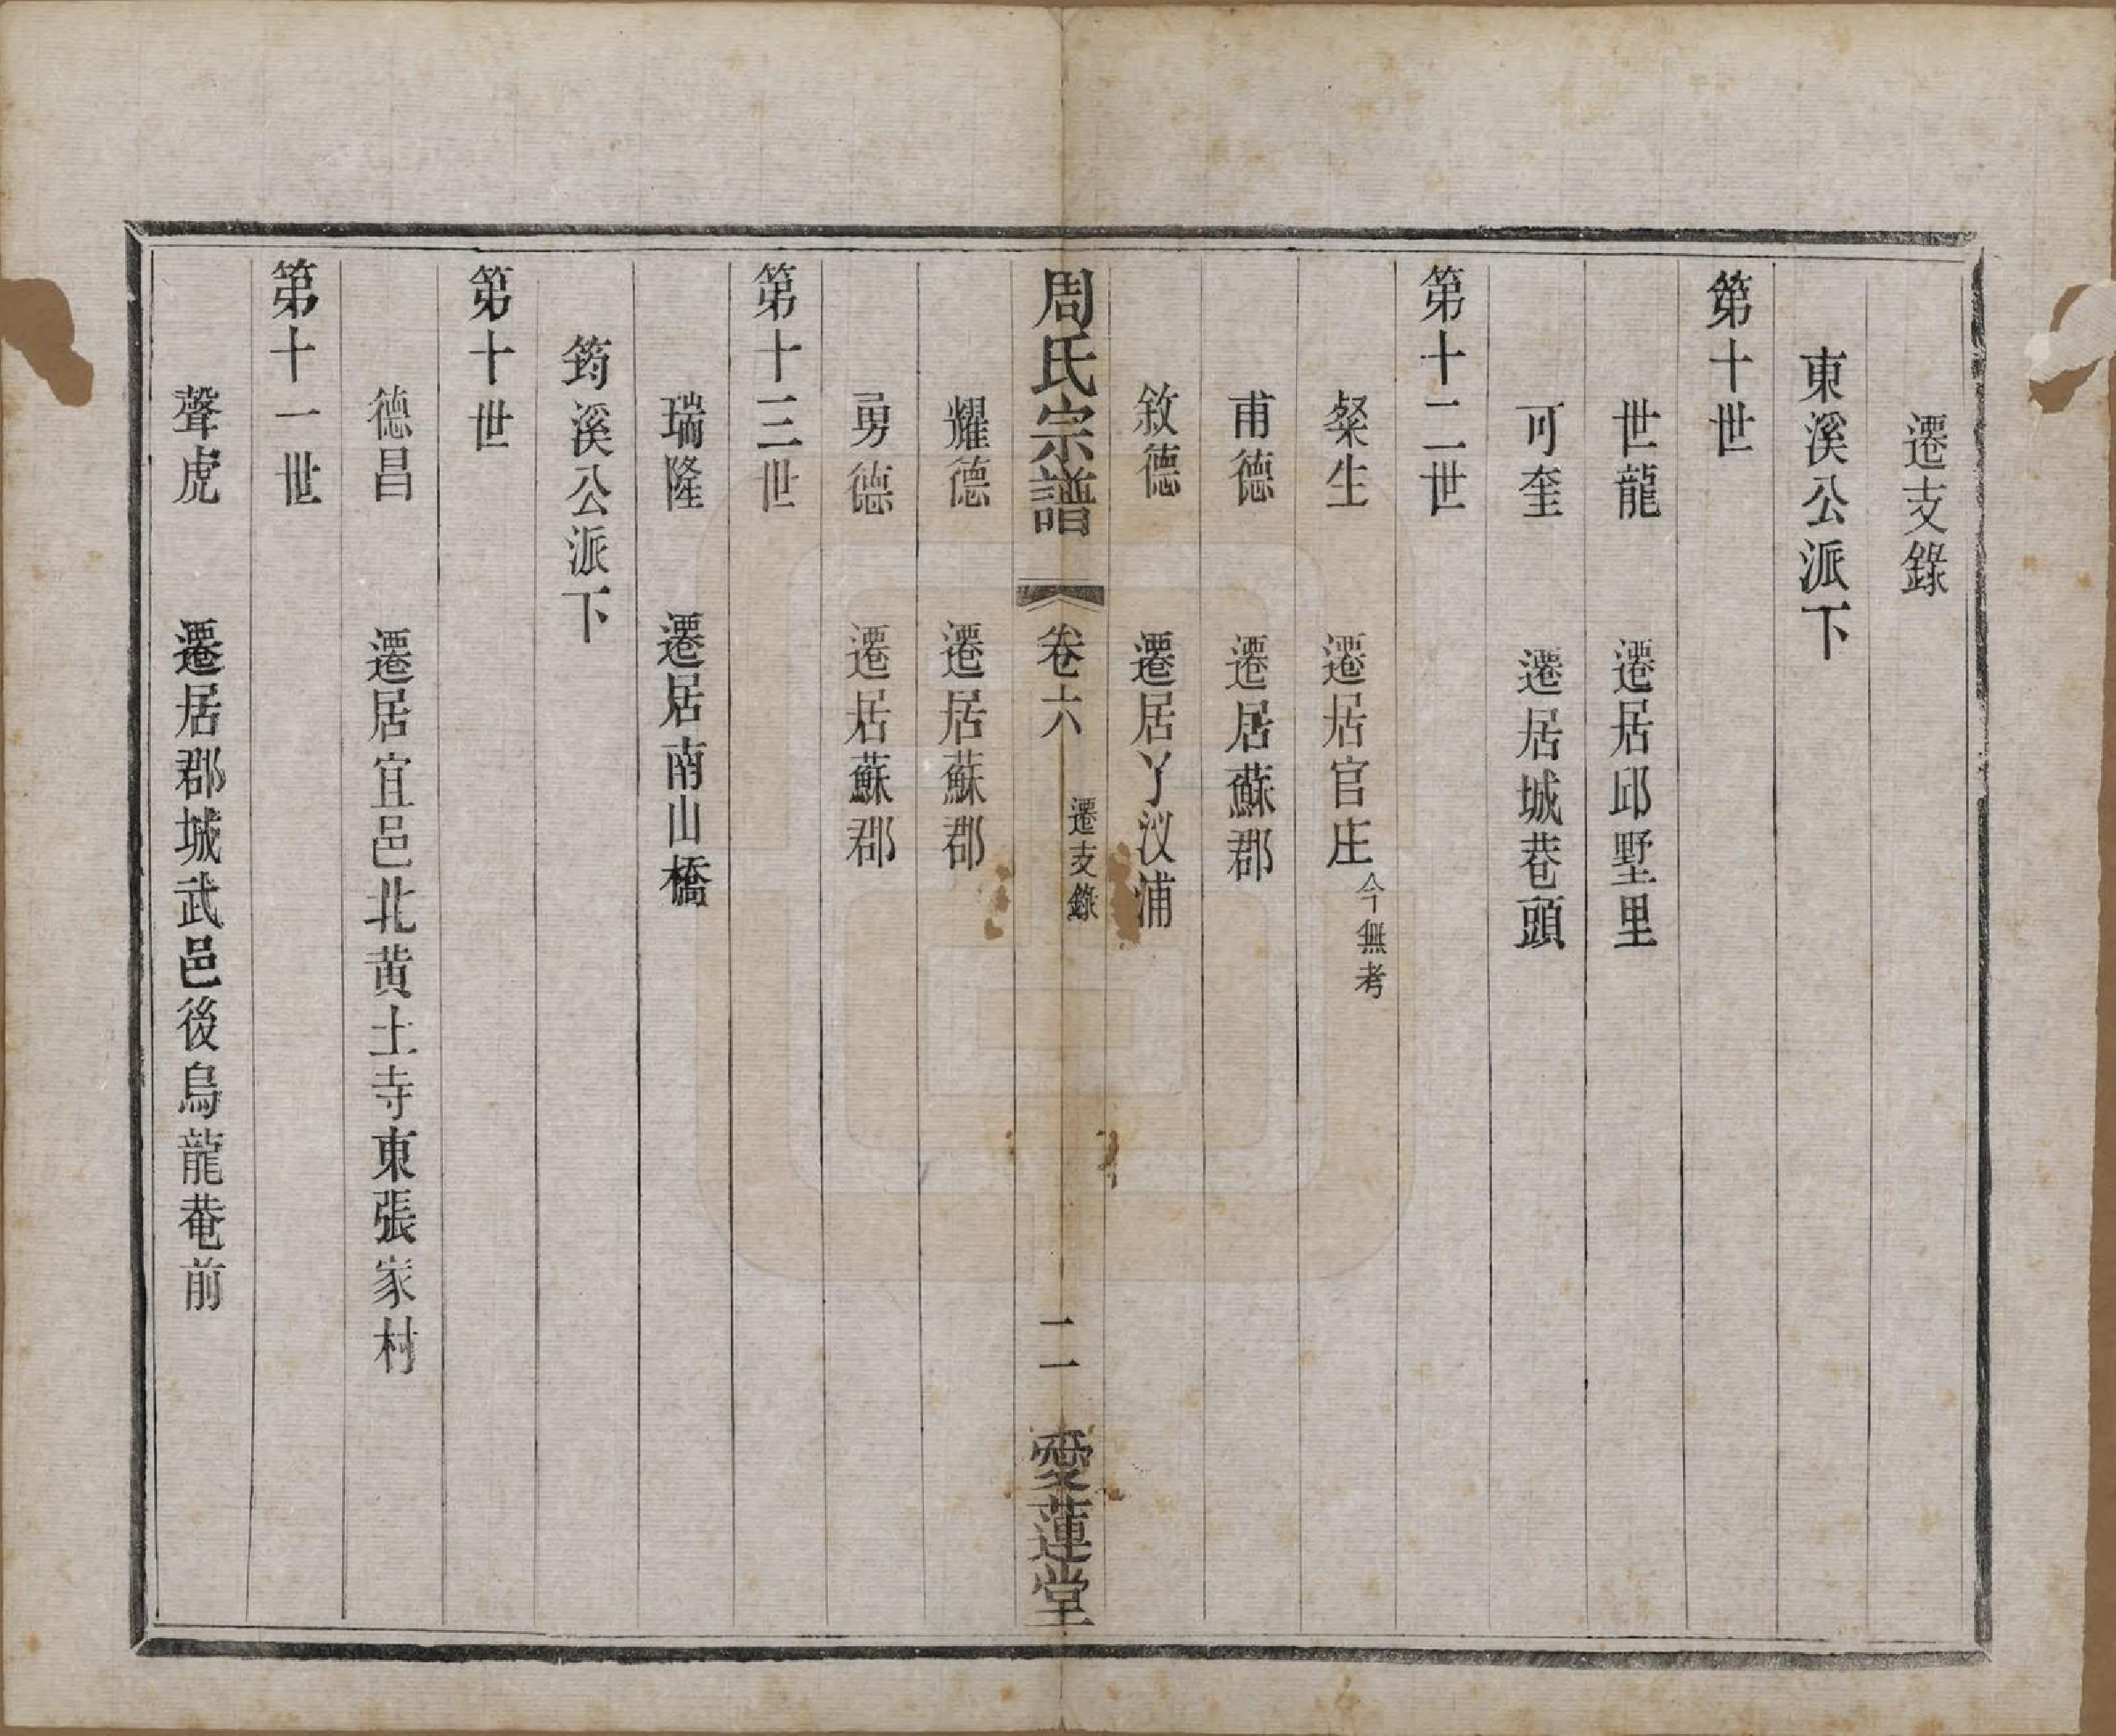 遷支錄
東溪公派下
第十世
世龍　遷居邱墅里
可奎　遷居城巷頭
第十二世
粲生　遷居官庄今無考
甫德　遷居蘇郡
敘德　遷居丫汊浦
周氏宗譜　卷六　遷支錄　二　愛蓮堂
耀德　遷居蘇郡
勇德　遷居蘇郡
第十三世
瑞隆　遷居南山橋
筠溪公派下
第十世
德昌　遷居宜邑北黃土寺東張家村
第十一世
聲虎　遷居郡城武邑後烏龍菴前